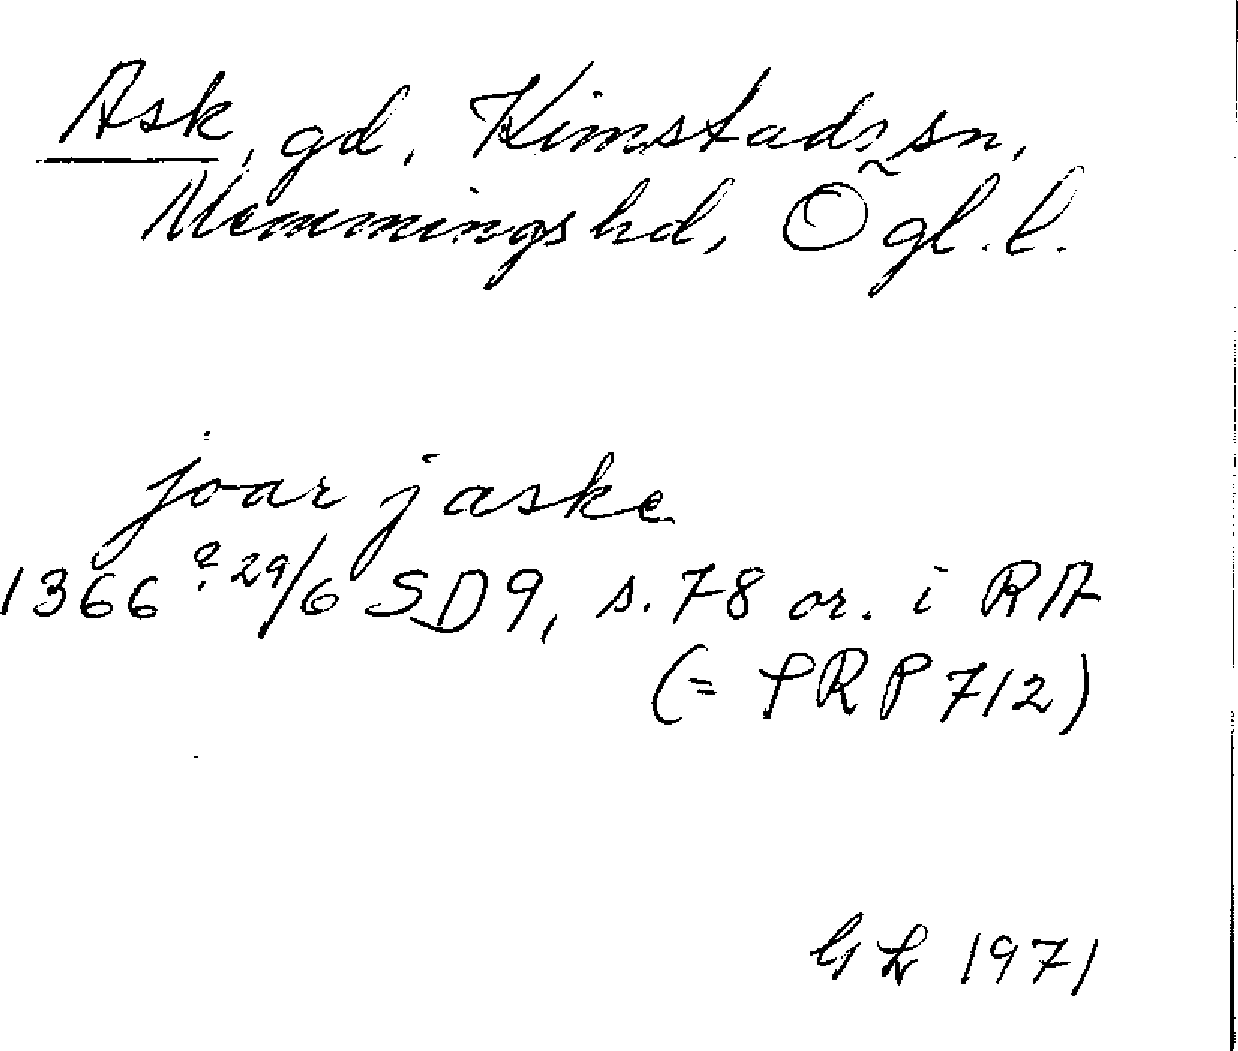 Ask, gd, Kimstads sn,
Memmings hd, Ögl. l.
joar j aske
1366 ? 29/6 SD9, s. 78 or. i RA
(= SRP 712)
GL 1971